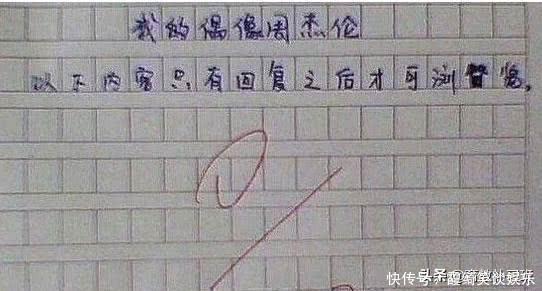 我的偶像周杰伦
以下内容只有回复之后才可浏览。
快传号